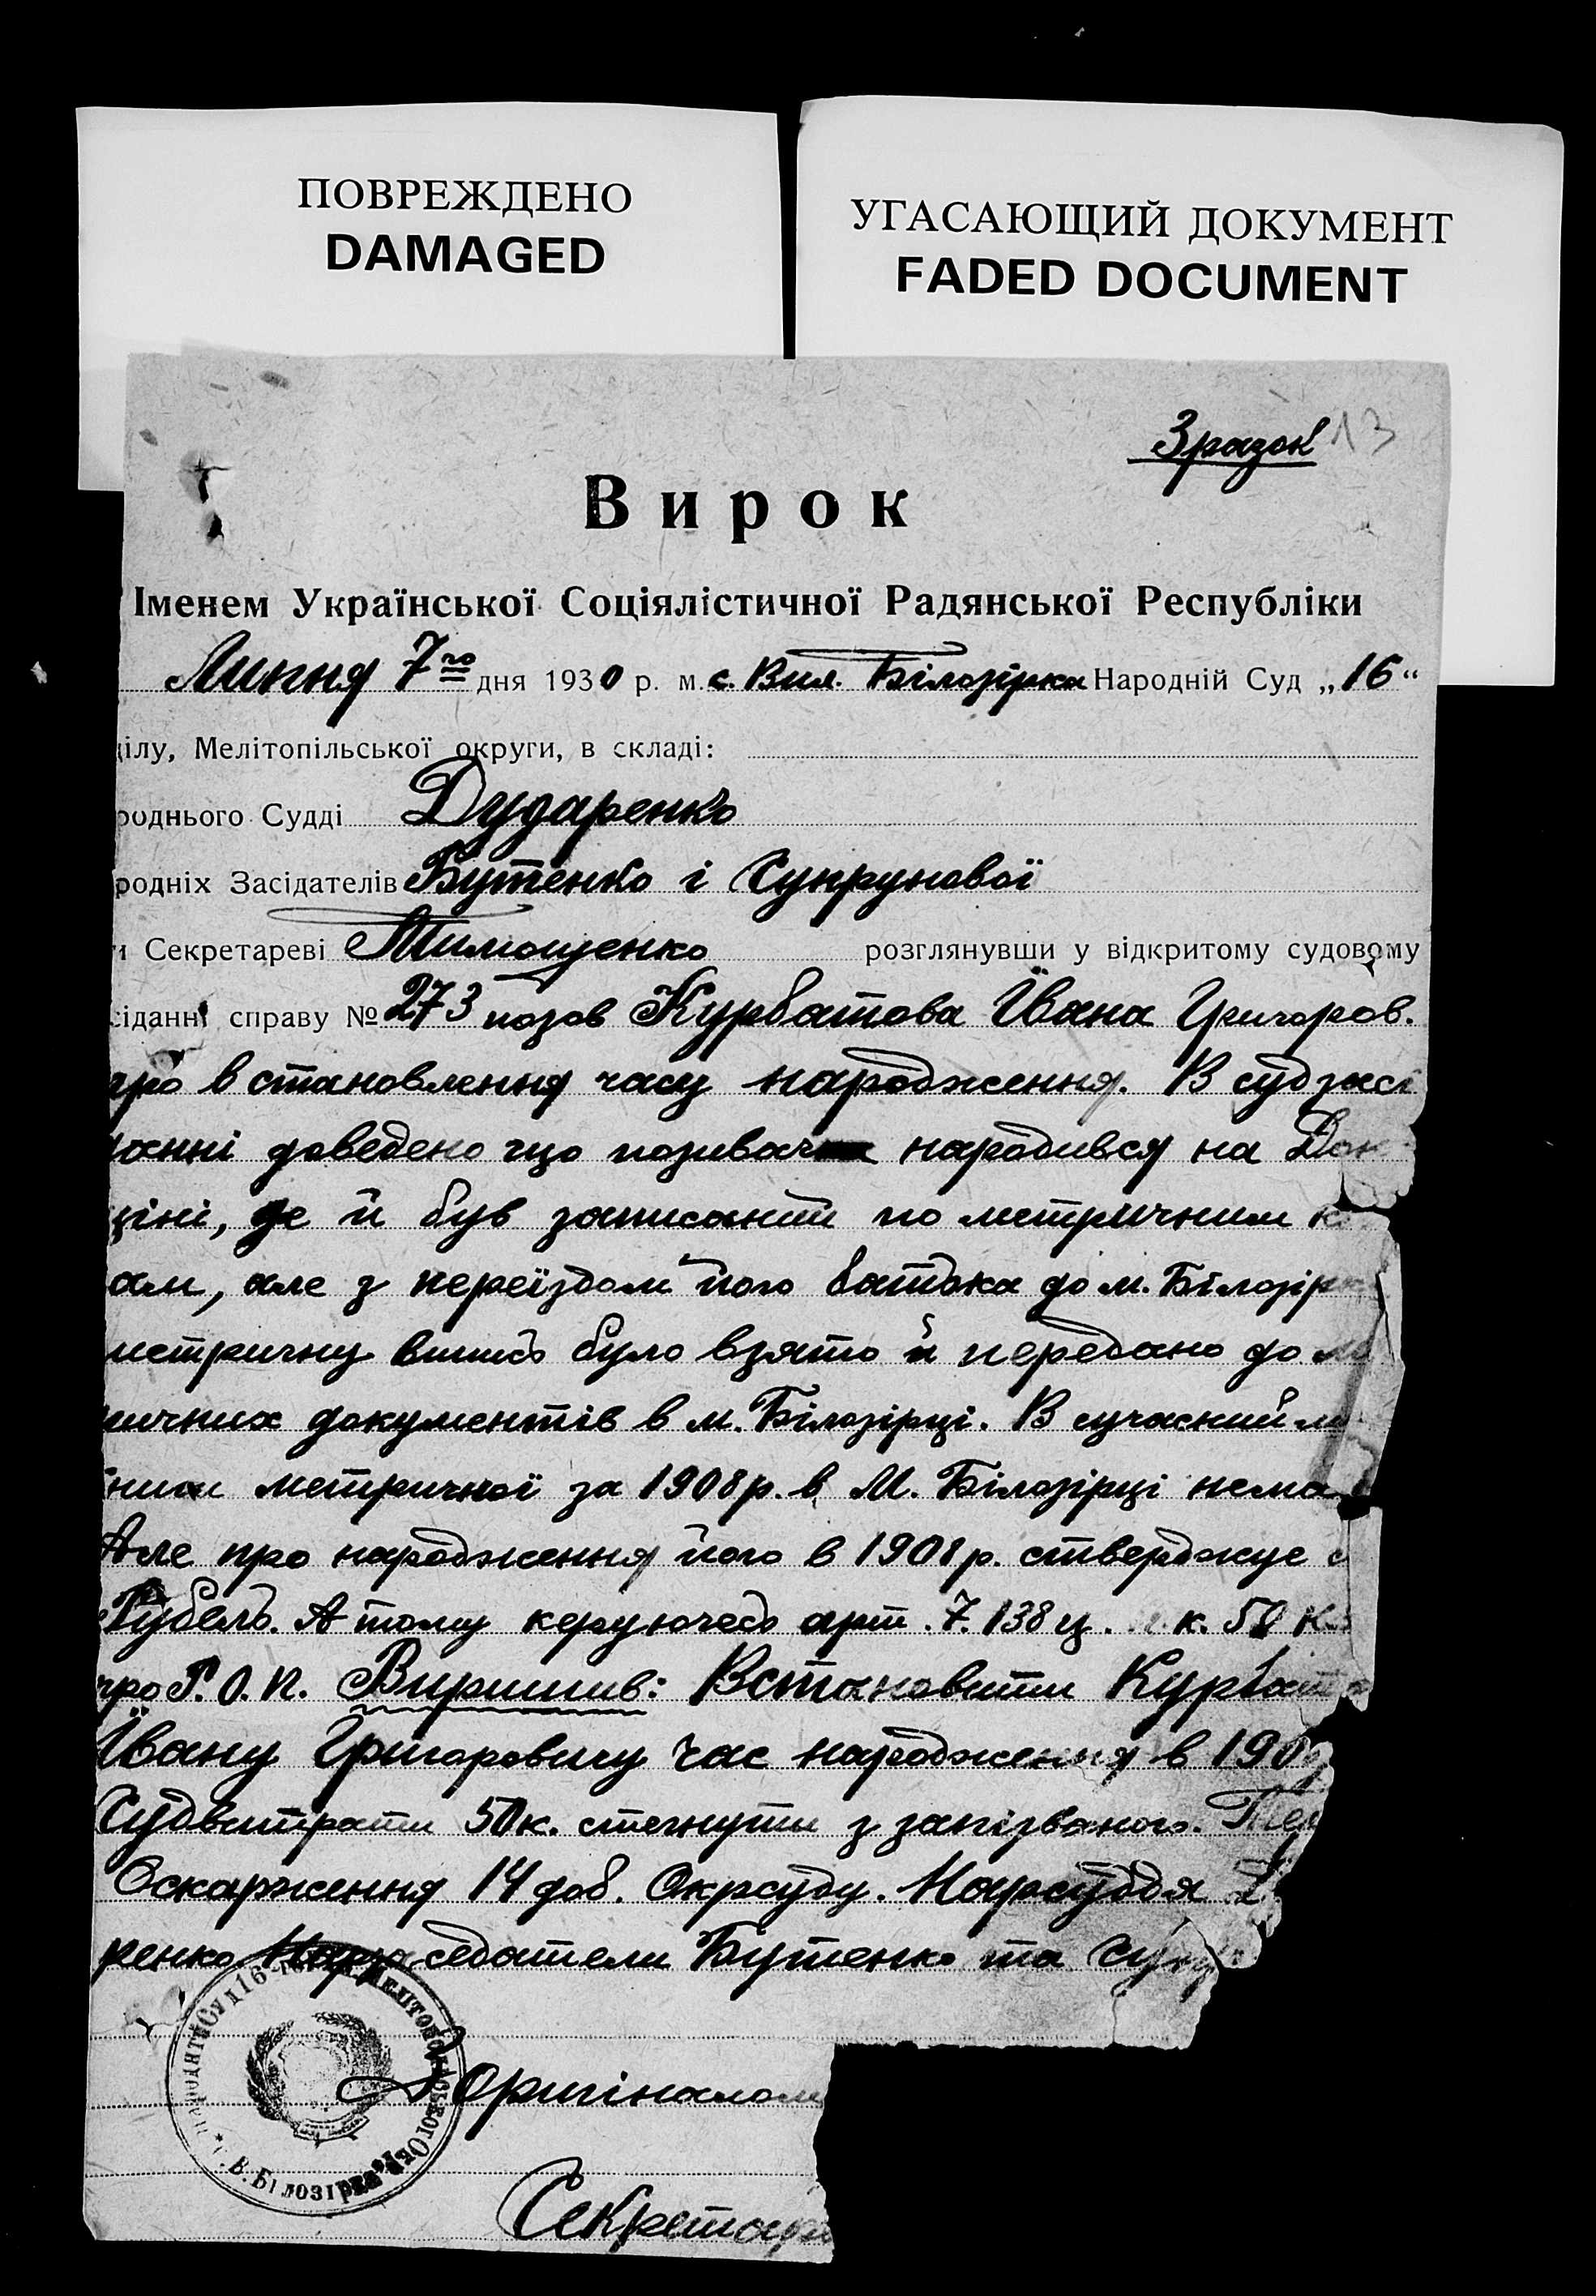 ПОВРЕЖДЕНО
DAMAGED
УГАСАЮЩИЙ ДОКУМЕНТ
FADED DOCUMENT
Зразок 13
Вирок
Іменем Української Соціялістичної Радянської Республіки
Липня 7го дня 1930 р. м. с. Вел. Білозірка Народній Суд „16“
ілу, Мелітопільської округи, в складі:
роднього Судді Дударенко
родніх Засідателів Бутенко і Супрунової
и Секретареві Тимощенко розглянувши у відкритому судовому
сіданні справу № 273 позов Курбатова Івана Григоров.
про встановлення часу народження. В суд засі
данні доведено що позивач народився на Дон
ціні, де й був записаний по метричним
ам, але з переїздом його батька до м. Білозір
метричну випись було взято й передано до м
ричних документів в м. Білозірці. В сучасний м
ниги метричної за 1908 р. в М. Білозірці нема
Але про народження його в 1908 р. стверджує с
Рубель. А тому керуючесь арт. 7. 138 ц. к. 50 к.
про Р. О. П. Вирішив: Встановити Курбат
Івану Григоровичу час народження в 190
Судвитрати 50 к. стягнути з запізваного. Тер
Оскарження 14 доб. Окрсуду. Нарсуддя Д
ренко Нарзаседатели Бутенко та Супр
Народній Суд 16
В. Білозірка
З Оригіналом
Секретарь